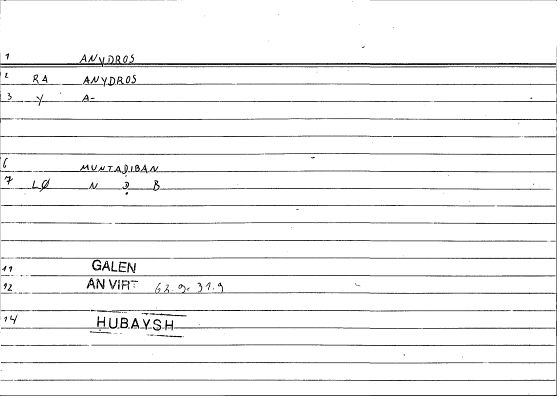 1 ANYDROS
2 RA ANYDROS
3 Y A-
6 MUNTAḌIBAN
7 LØ N Ḍ B
11 GALEN
12 AN VIRT 62.9. 31.9
14 HUBAYSH